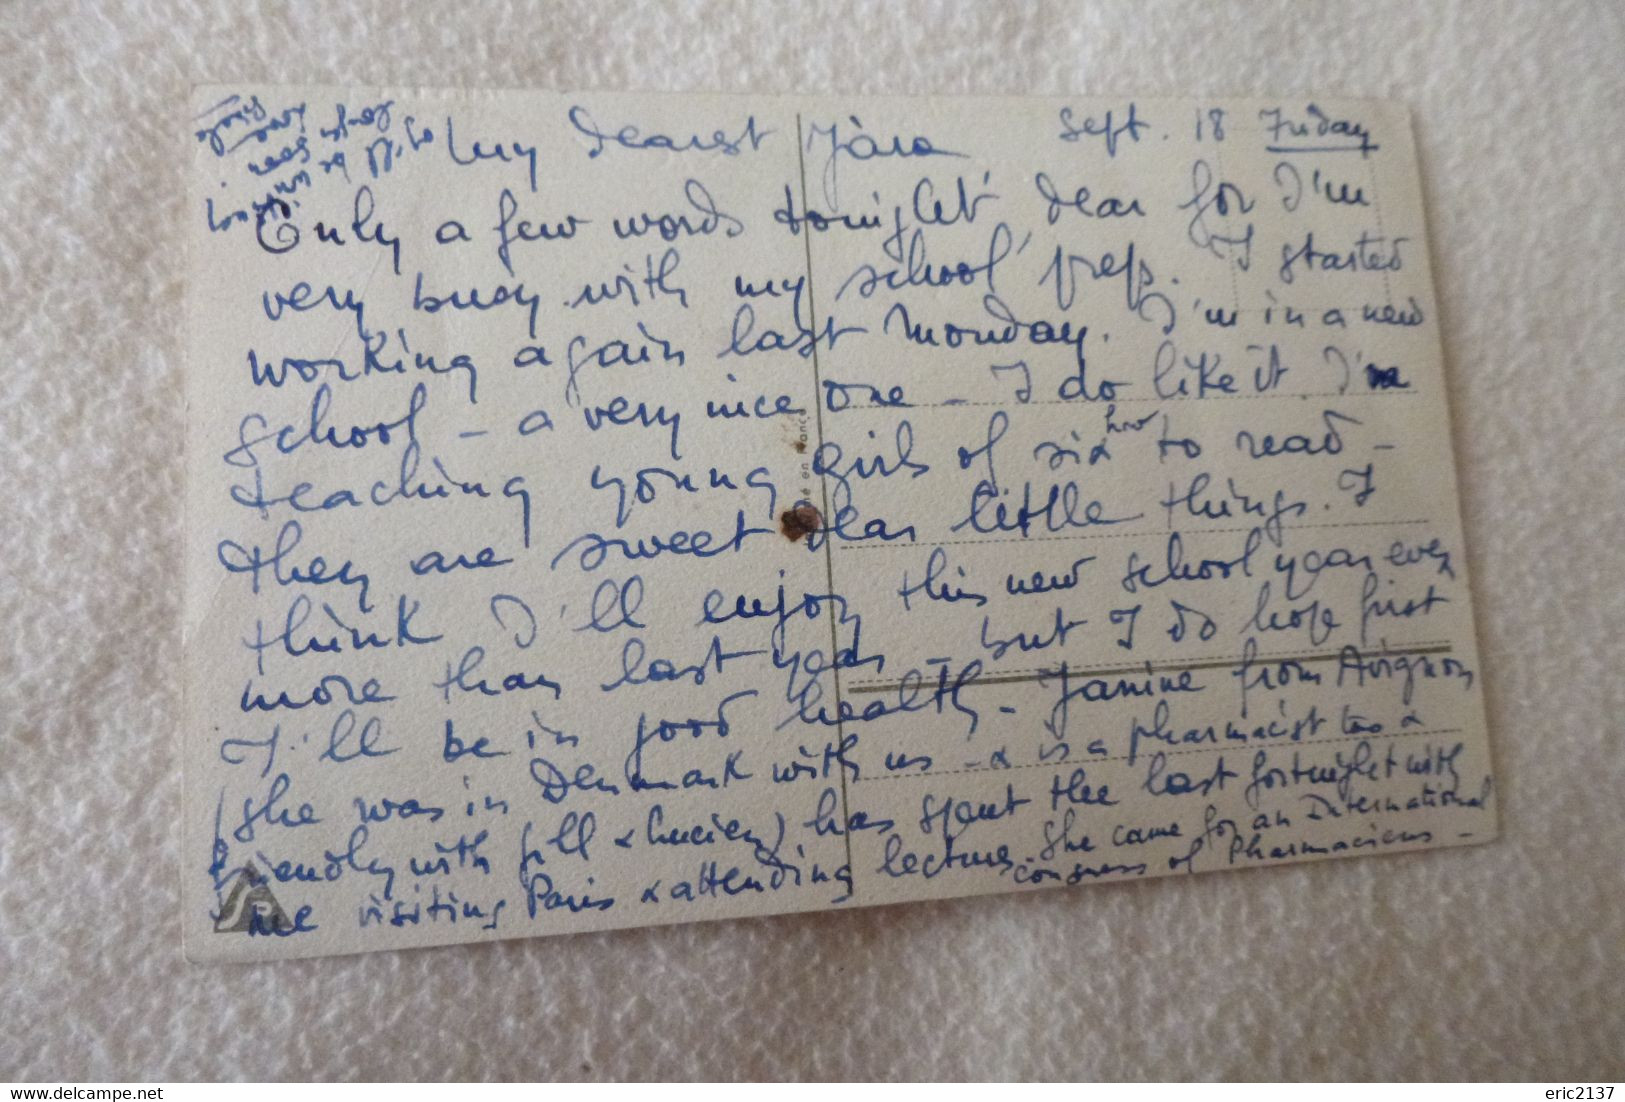 Sept. 18 Friday
My dearest Jára
Only a few words tonight, dear for I'm
very busy with my school prep. I started
working again last Monday. I'm in a new
school – a very nice one – I do like it. I'm
teaching young girls of six how to read –
they are sweet dear little things. I
think I'll enjoy this new school year even
more than last year – but I do hope first
I'll be in good health – Janine from Avignon
(she was in Denmark with us – & is a pharmacist too &
friendly with Jill & Lucien) has spent the last fortnight with
me visiting Paris & attending lectures. She came for an International
congress of Pharmaciens –
en France
eric2137